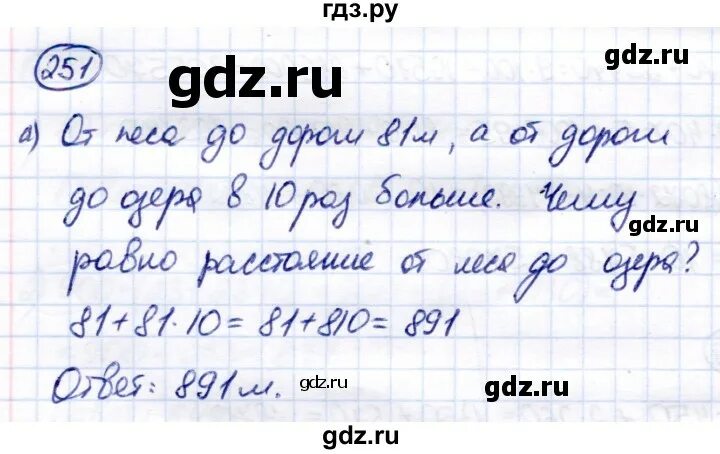 гдз.ру
251
gdz.ru
gdz.ru
а) От леса до дороги 81м, а от дороги
до озера в 10 раз больше. Чему
gdz.ru
равно расстояние от леса до озера?
81+81·10=81+810=891
Ответ: 891м.
gdz.ru
gdz.ru
gdz.ru